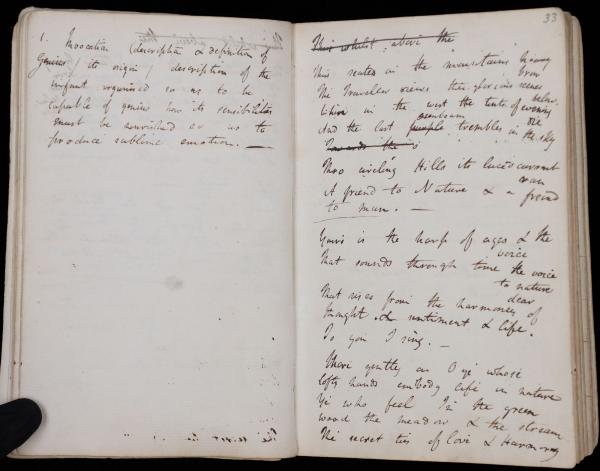 1. Invocation (description & definition of
Genius / its origin / description of the
infant organised so as to be
capable of genius how its sensibilities
must be nourished so as to
produce sublime emotion. —
33
This whilst above the
Thus seated on the mountains heavy
brow
The Traveller views the glorious scenes
below.
in the west the tints of evening
die
sunbeam
And the last purple trembles in the sky
Towards the
Thro circling Hills its lucid current
ran
A friend to Nature & a friend
to man. —
Yours is the harp of ages & the
voice
That sounds through time the voice
to nature
dear
That rises from the harmony of
thought & sentiment & life.
To you I sing. —
O ye whose
lofty hands embody life in nature
Ye who feel in the green
wood the meadow & the stream
The secret ties of love & Harmony